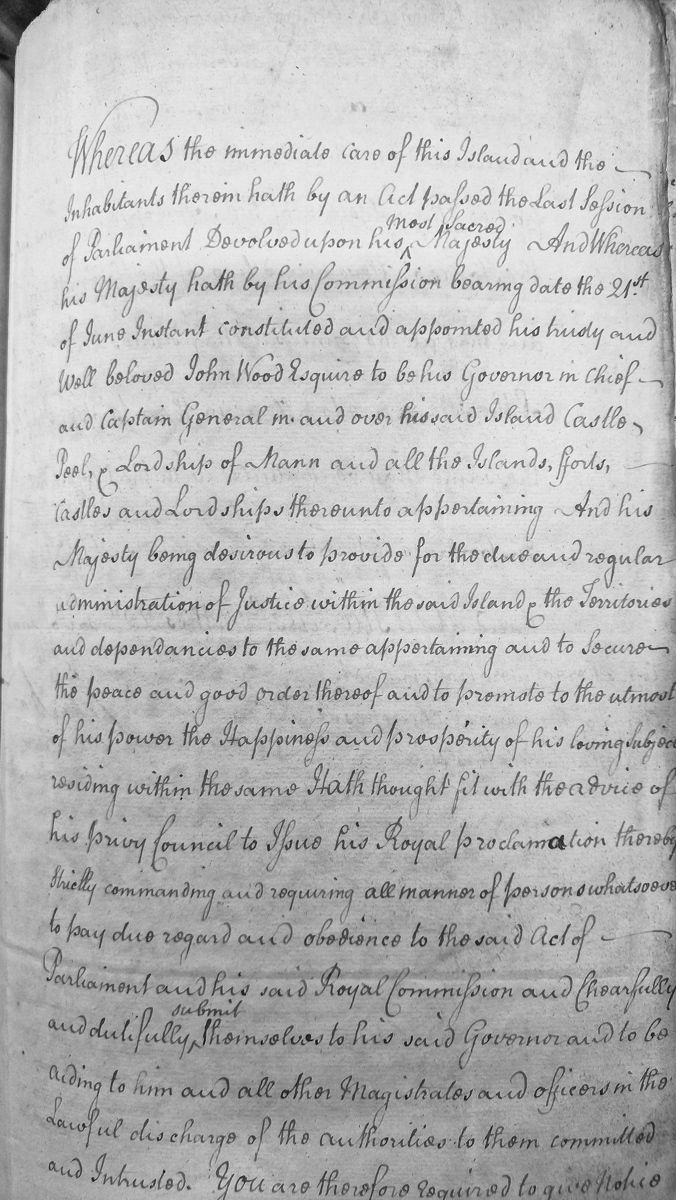 Whereas the immediate care of this Island and the
Inhabitants therein hath by an Act passed the Last Session
of Parliament Devolved upon his ^ most Sacred Majesty And Whereas
his Majesty hath by his Commission bearing date the 21st.
of June Instant constituted and appointed his trusty and
Well beloved John Wood Esquire to be his Governor in Chief
and Captain General in and over his said Island Castle,
Peel, & Lordship of Mann and all the Islands, fforts,
Castles and Lordships thereunto appertaining And his
Majesty being desirous to provide for the due and regular
administration of Justice within the said Island & the Territories
and dependancies to the same appertaining and to Secure
the peace and good order thereof and to promote to the utmost
of his power the Happiness and prosperity of his loving Subject
residing within the same Hath thought fit with the advice of
his privy Council to Issue his Royal proclamation thereby
Strictly commanding and requiring all manner of persons whatsoever
to pay due regard and obedience to the said Act of
Parliament and his said Royal Commission and Chearfully
and dutifully ^ submit themselves to his said Governor and to be
aiding to him and all other Magistrates and officers in the
Lawful discharge of the authorities to them committed
and Intrusted. You are therefore required to give Notice